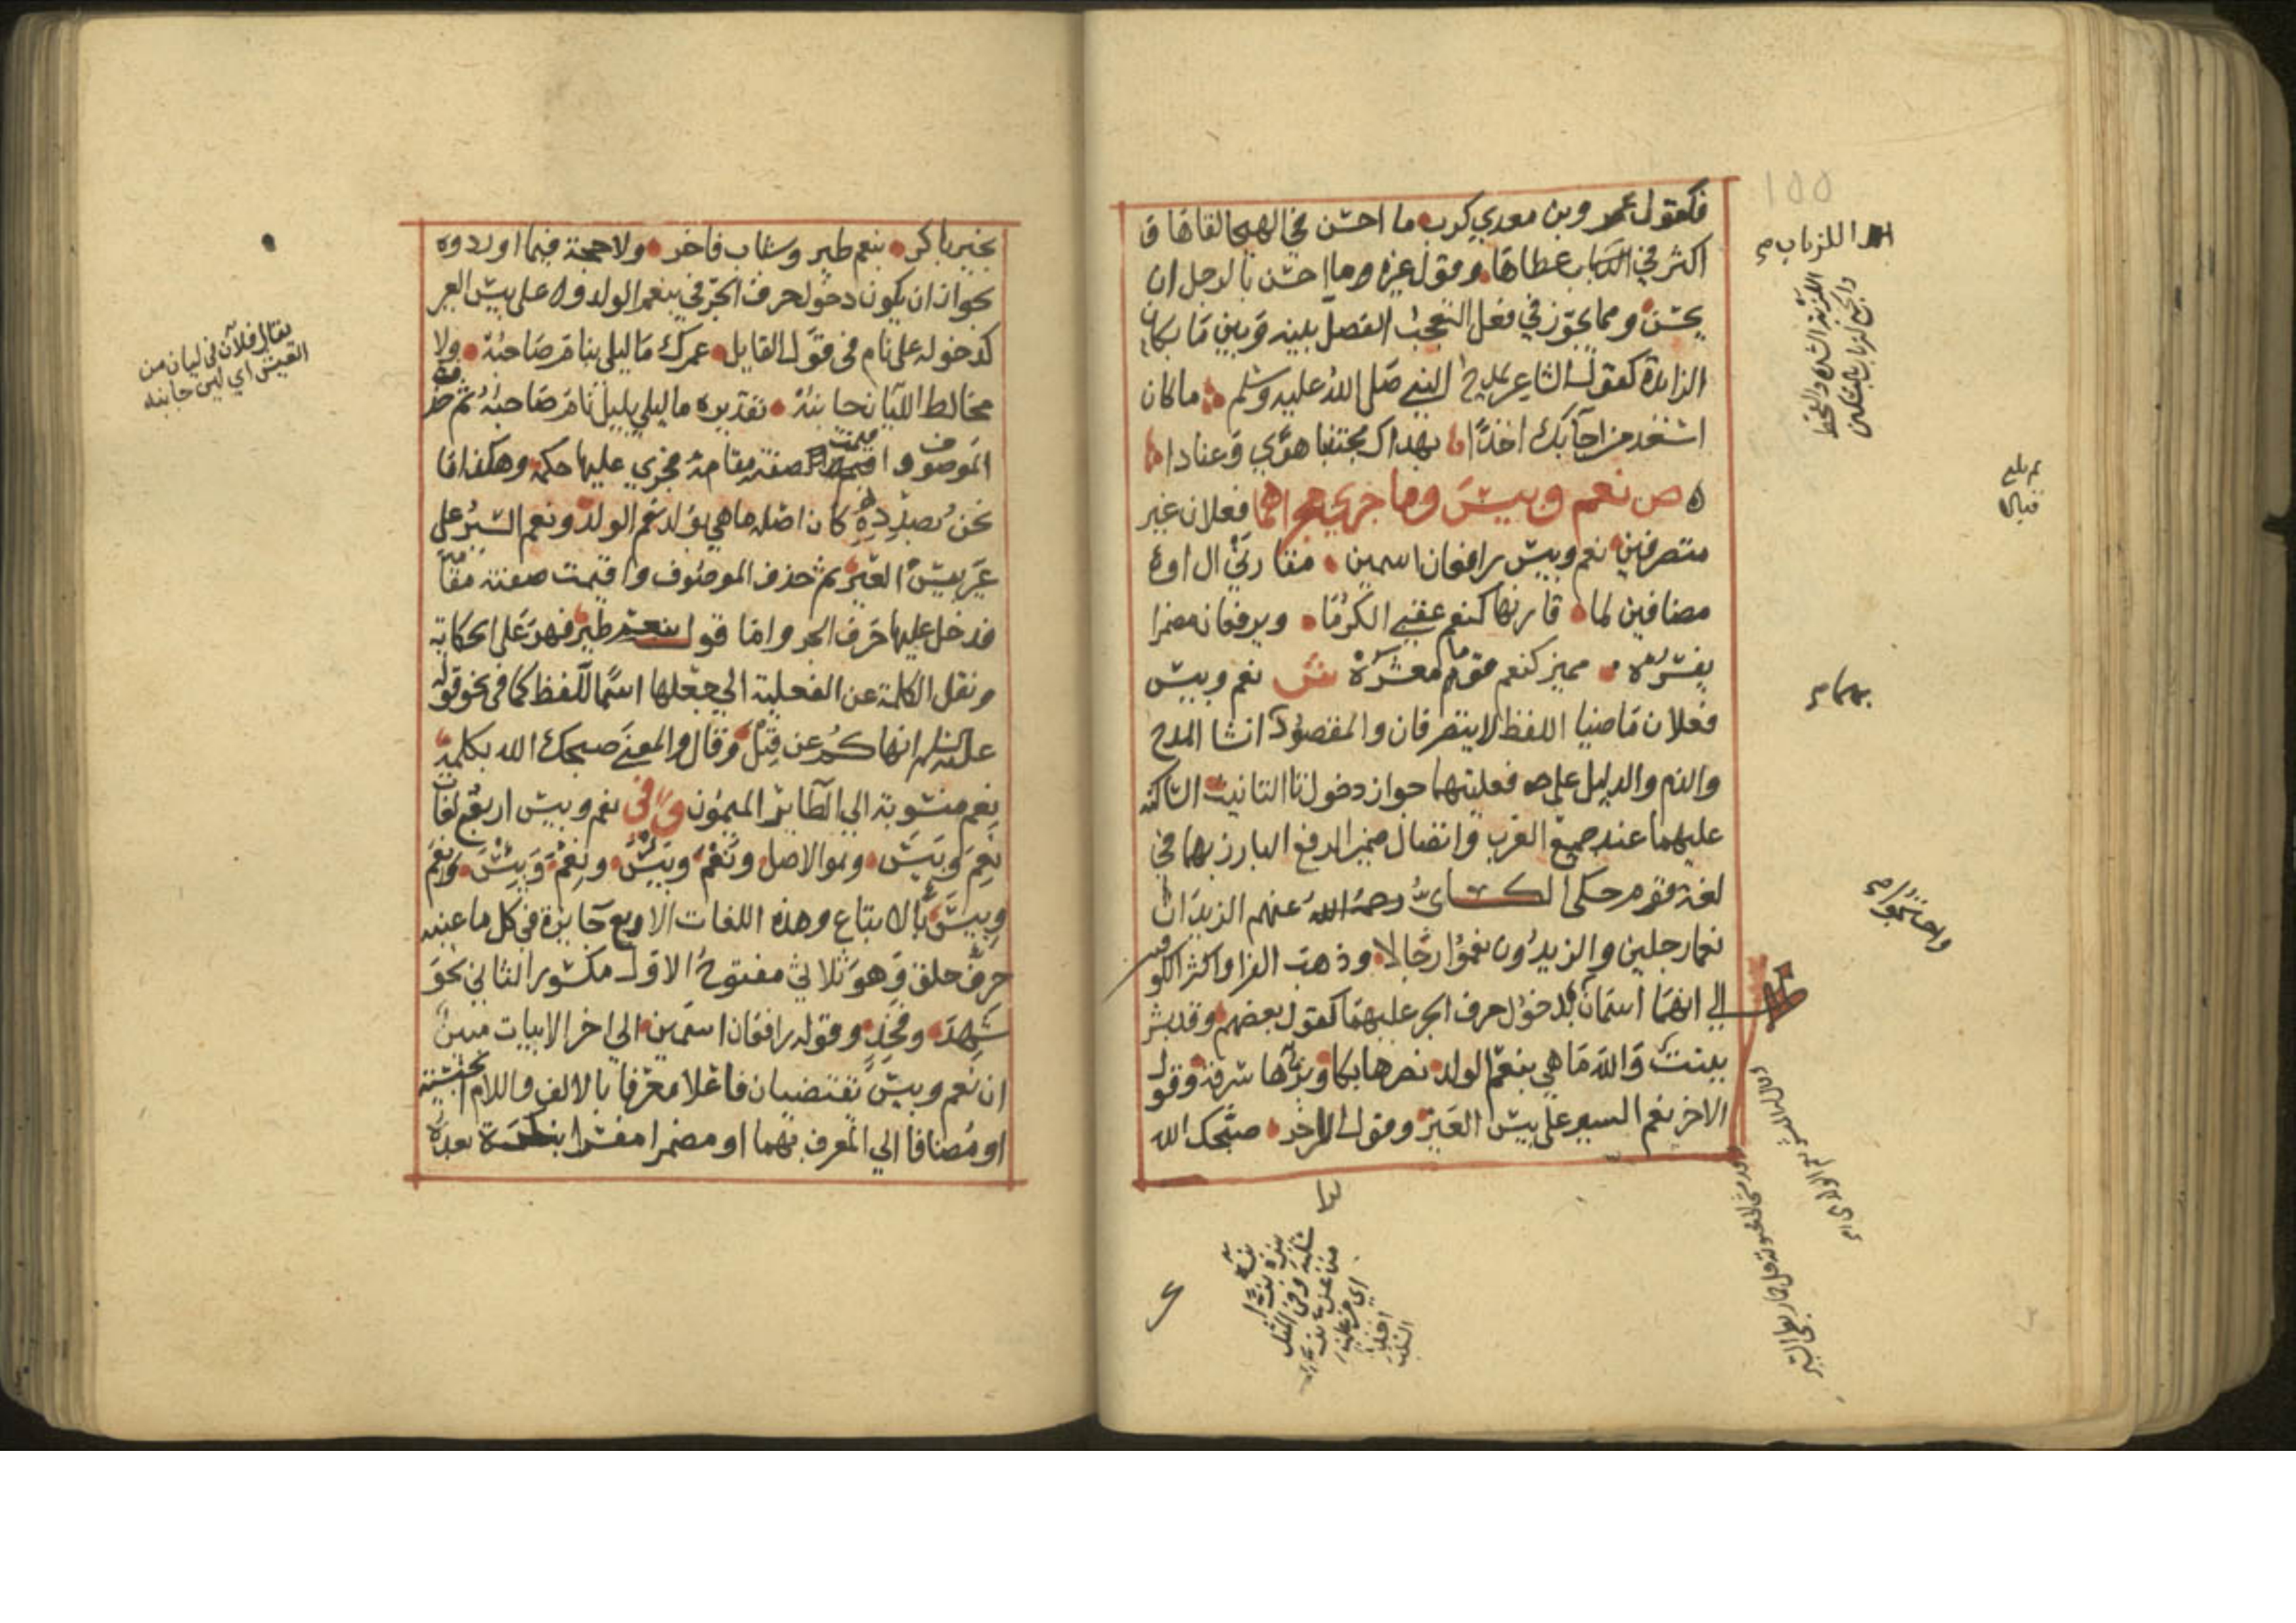 فكقول عمرو بن معدي كرب ما احسن في الهيجا لقاها و
اكثر في اللزبات عطاها وقول غيره وما احسن بالرجل ان
يحسن ومما يجوز في فعل التعجب الفصل بينه وبين ما بكان
الزائدة كقول الشاعر يمدح النبي صلى الله عليه وسلم ما كان
اسعد من اجابك اخذا بهداك مجتنبا هوى وعنادا
ه ص نعم وبيس وما جري مجراهما فعلان غير
متصرفين نعم وبيس رافعان اسمين مقارني ال او
مضافين لما قارنها كنعم عقبى الكرما ويرفعان مضمرا
يفسره مميز كنعم قوما معشره ش نعم وبيس
فعلان ماضيا اللفظ لا يتصرفان والمقصود انشا المدح
والذم والدليل على فعليتهما جواز دخول تا التانيث الساكنة
عليهما عند جميع العرب واتصال ضمير الرفع البارز بهما في
لغة قوم حكى الكسائي رحمه الله عنهم الزيدان
نعما رجلين والزيدون نعموا رجالا وذهب الفرا واكثر الكوفيين
الى انهما اسمان لدخول حرف الجر عليهما كقول بعضهم وقد بشر
ببنت والله ما هي بنعم الولد نصرها بكا وبرها سرقة وقول
الاخر نعم السير على بيس العير وقول الاخر صبحك الله
اللزبات
اللزبة الشدة والقحط
والجمع لزبات بالتسكين
بهما
بخير باكر بنعم طير وشباب فاخر ولا حجة فيما اوردوه
بجواز ان يكون دخول حرف الجر في بنعم الولد وعلى بيس العير
كدخوله على نام في قول القايل عمرك ما ليلى بنام صاحبه ولا
مخالط الليان جانبه تقديره ما ليلي بليل نام صاحبه ثم حذف
الموصوف واقيمت صفته مقامه فجري عليها حكمه وهكذا ما
نحن بصدده كان اصله ما هي بولد نعم الولد ونعم السير على
عير بيس العير ثم حذف الموصوف واقيمت صفته مقامه
فدخل عليها حرف الجر واما قول بنعم طير فهو على الحكاية
ونقل الكلمة عن الفعلية الي جعلها اسما للفظ كما في نحو قوله
عليه السلم انهاكم عن قيل وقال والمعنى صبحك الله بكلمة
نعم منسوبة الي الطاير الميمون وفي نعم وبيس اربع لغات
نعم وبيس وهو الاصل ونعم وبيس ونعم وبيس ونعم
وبيس بالاتباع وهذه اللغات الاربع جايزة في كل ما عينه
حرف حلق وهو ثلاثي مفتوح الاول مكسور الثاني نحو
شهد وفخذ وقوله رافعان اسمين الي اخر الابيات مبين
ان نعم وبيس تقتضيان فاعلا معرفا بالالف واللام الجنسية
او مضافا الي المعرف بهما او مضمرا مفسرا بنكرة بعده
يقال فلان في ليان من
العيش اي لين جانبه